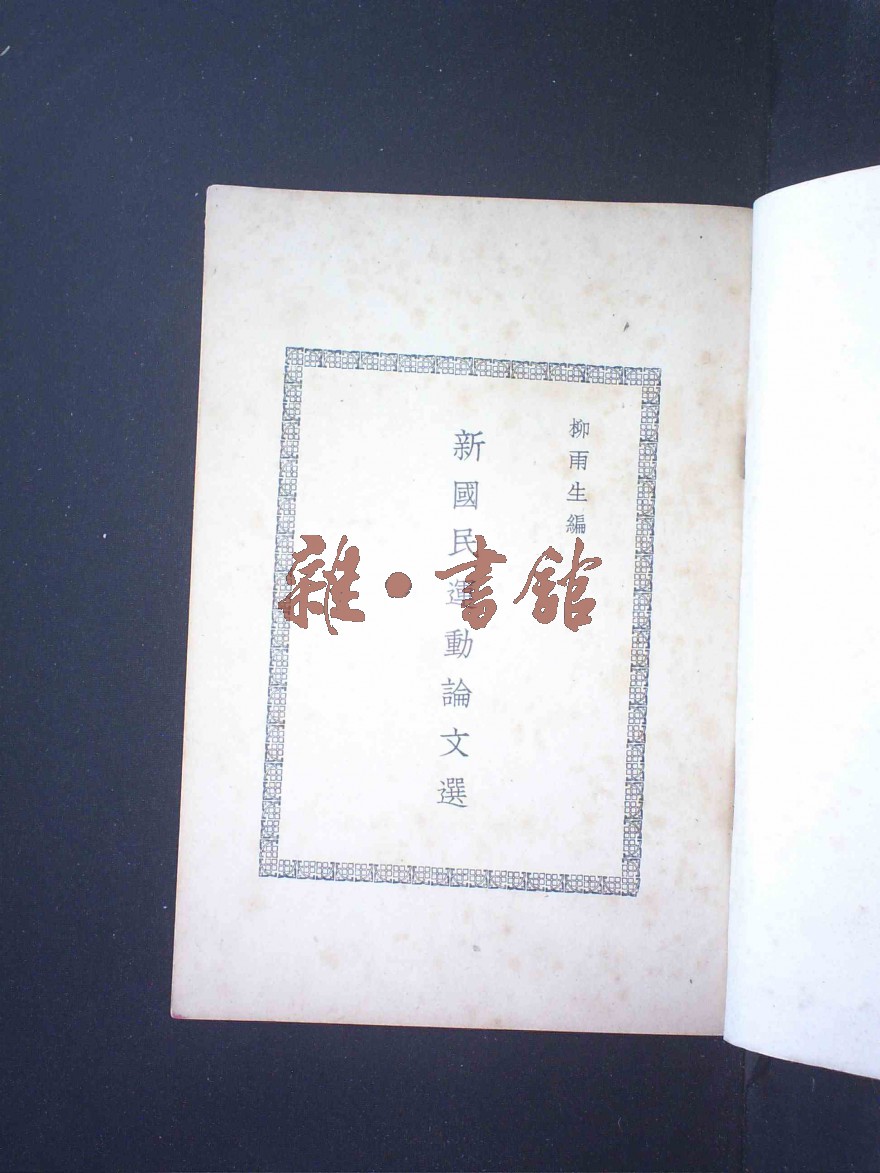 柳雨生編
新國民運動論文選
雜·書館